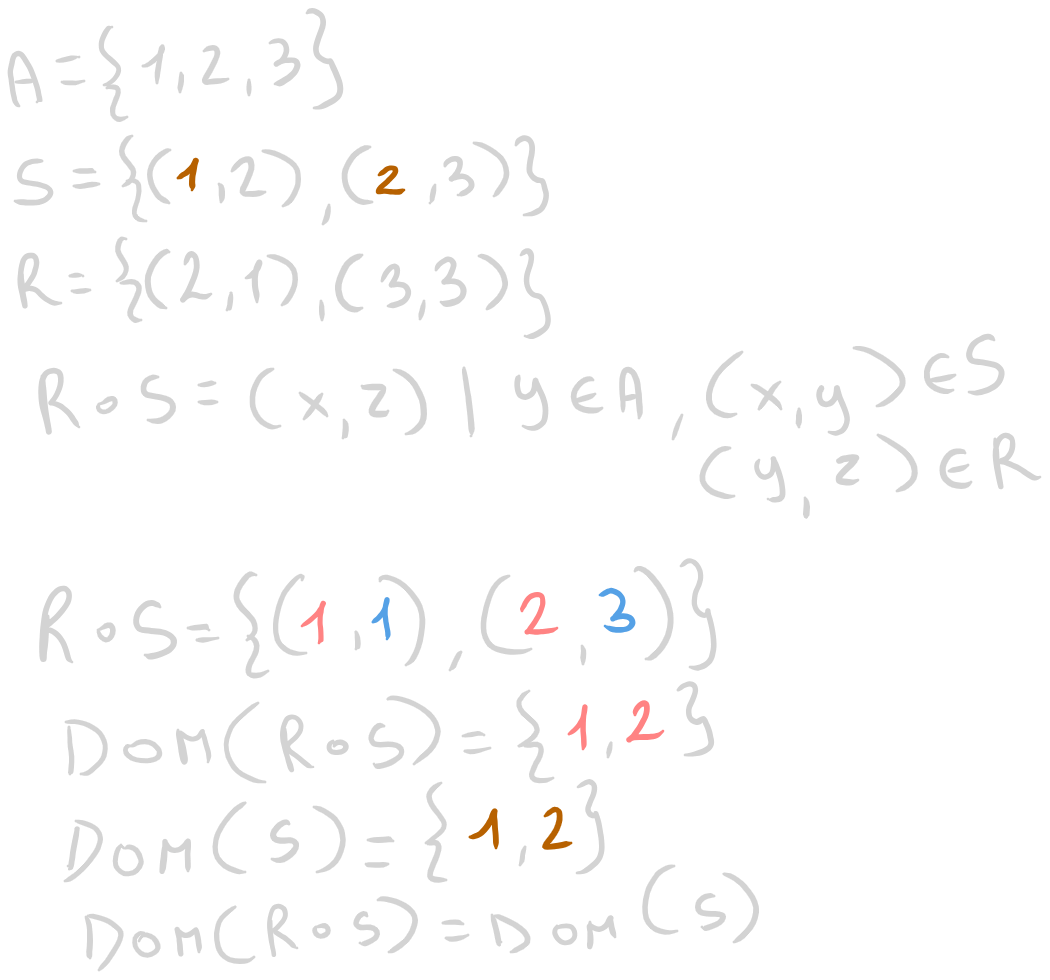 A={1,2,3}
S={(1,2),(2,3)}
R={(2,1),(3,3)}
R∘S=(x,z)|y∈A,(x,y)∈S
(y,z)∈R
R∘S={(1,1),(2,3)}
DOM(R∘S)={1,2}
DOM(S)={1,2}
DOM(R∘S)=DOM(S)